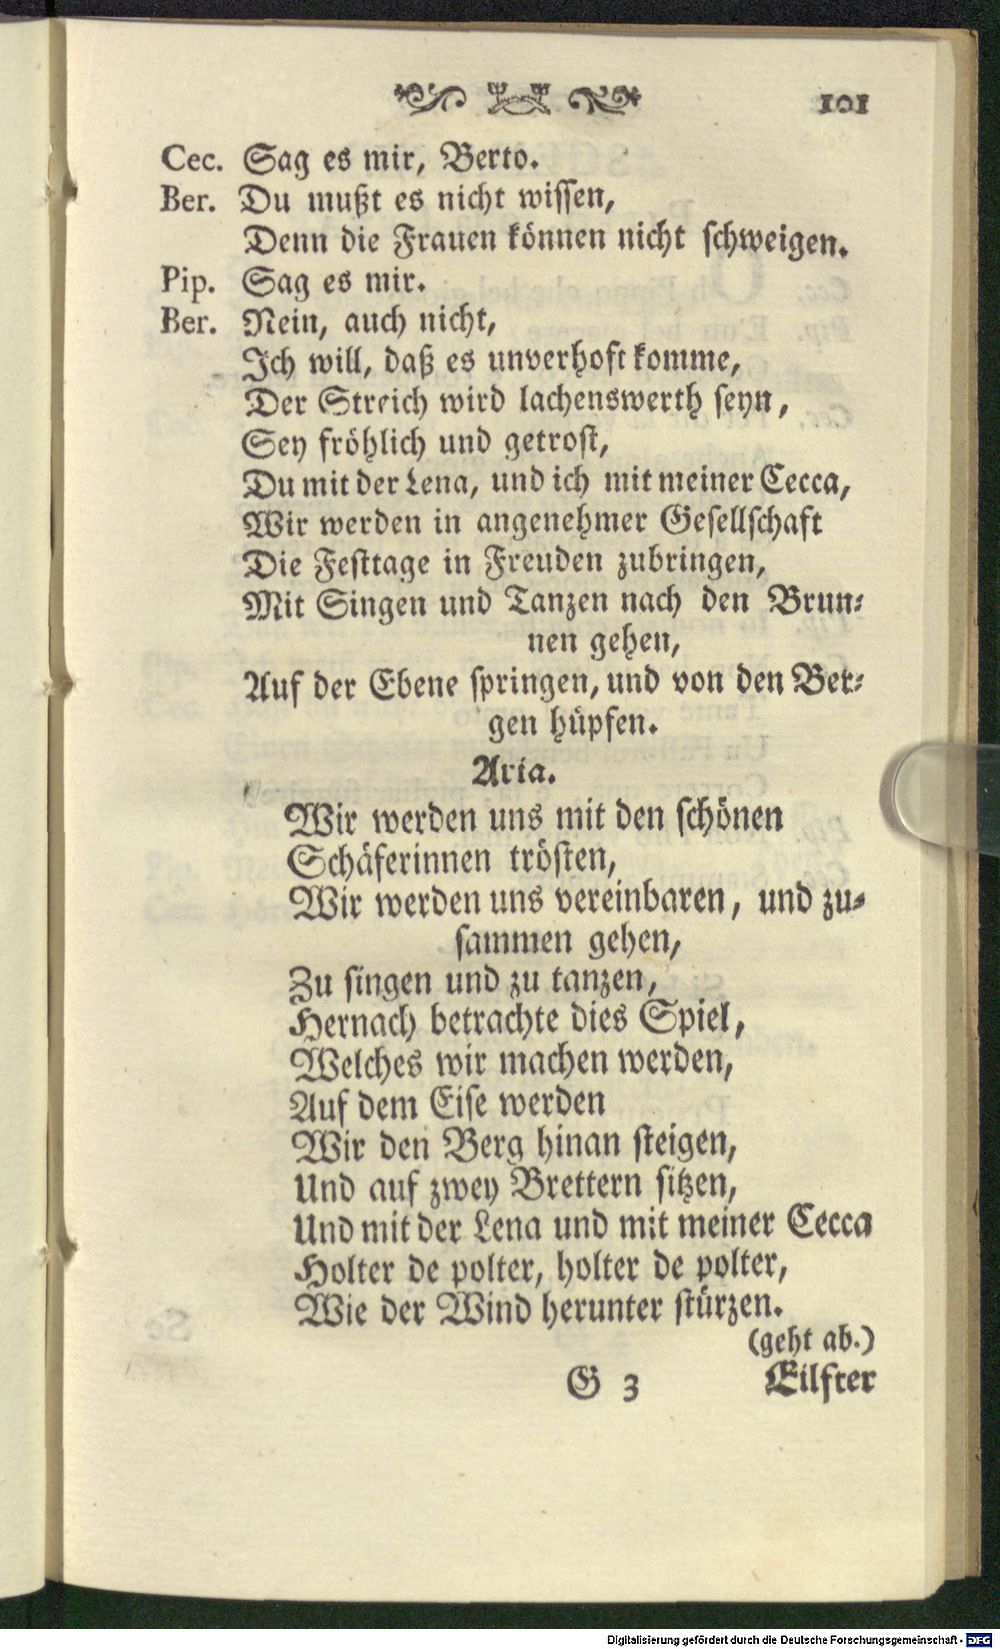 101
Cec. Sag es mir, Berto.
Ber. Du mußt es nicht wissen,
Denn die Frauen können nicht schweigen.
Pip. Sag es mir.
Ber. Nein, auch nicht,
Ich will, daß es unverhoft komme,
Der Streich wird lachenswerth seyn,
Sey fröhlich und getrost,
Du mit der Lena, und ich mit meiner Cecca,
Wir werden in angenehmer Gesellschaft
Die Festtage in Freuden zubringen,
Mit Singen und Tanzen nach den Brun-
nen gehen,
Auf der Ebene springen, und von den Ber-
gen hüpfen.
Aria.
Wir werden uns mit den schönen
Schäferinnen trösten,
Wir werden uns vereinbaren, und zu-
sammen gehen,
Zu singen und zu tanzen,
Hernach betrachte dies Spiel,
Welches wir machen werden,
Auf dem Eise werden
Wir den Berg hinan steigen,
Und auf zwey Brettern sitzen,
Und mit der Lena und mit meiner Cecca
Holter de polter, holter de polter,
Wie der Wind herunter stürzen.
(geht ab.)
G 3 Eilfter
Digitalisierung gefördert durch die Deutsche Forschungsgemeinschaft - DFG